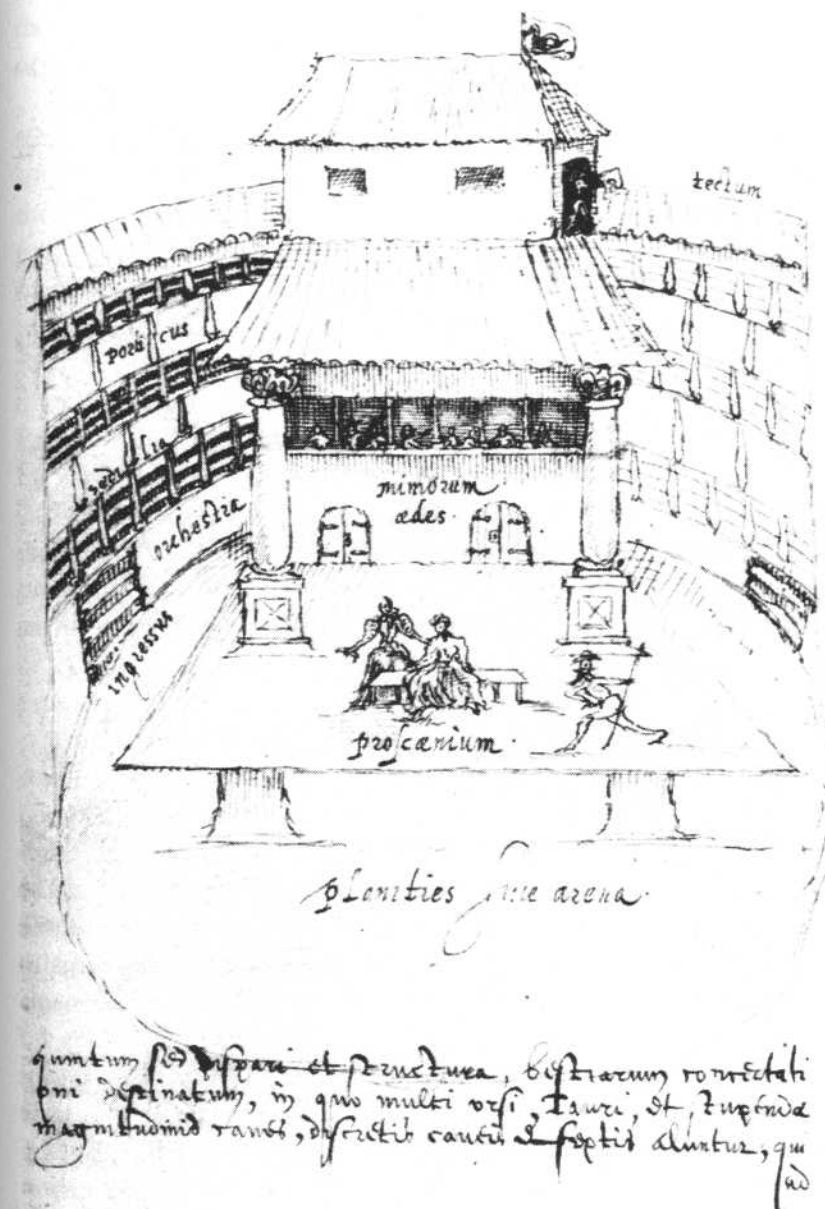 tectum
porticus
sedilia
orchestra
mimorum
ædes.
ingressus
proscænium.
planities siue arena.
quintum sed dispari et structura, bestiarum concertati
oni destinatum, in quo multi ursi, Tauri, et stupendæ
magnitudinis canes, discretis caueis & septis aluntur, qui
ad